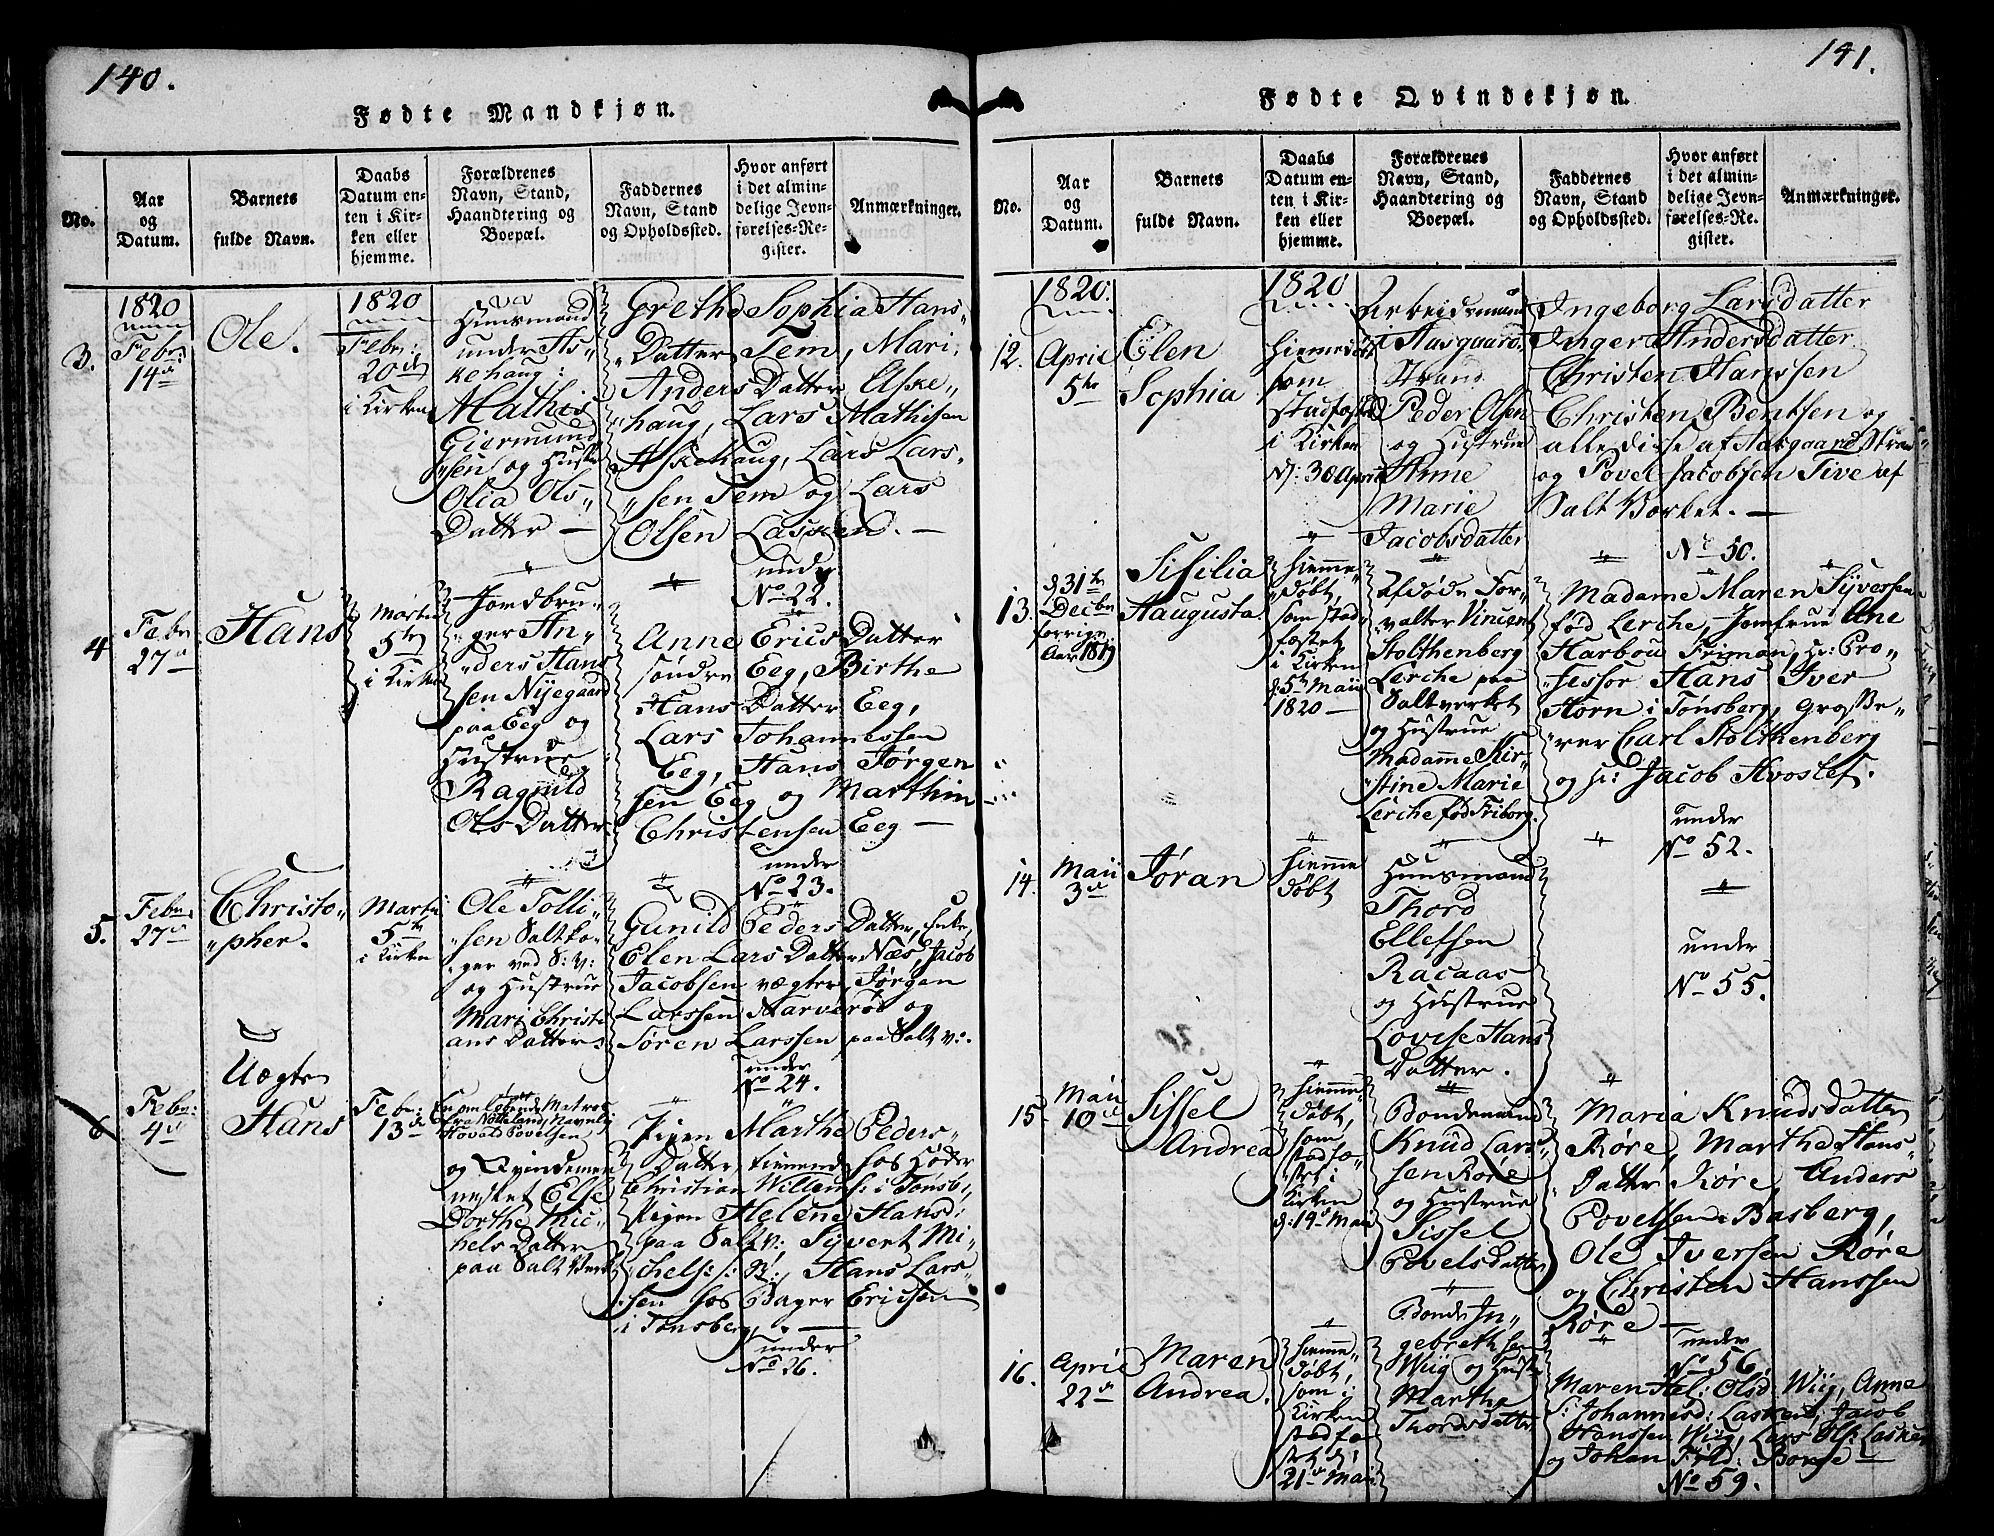 140.
Fødte Mandkjøn.
No.
Aar
og
Datum.
Barnets
fulde Navn.
Daabs
Datum en-
ten i Kir-
ken eller
hjemme.
Forældrenes
Navn, Stand,
Haandtering og
Boepæl.
Faddernes
Navn, Stand
og Opholdssted.
Hvor anført
i det almin-
delige Jevn-
førelses-Re-
gister.
Anmærkninger.
3.
1820
Febr:
14de
Ole.
1820
Febr:
20de
i Kirken
Huusmand
under As-
kehaug:
Mathis
Giermund
sen og Hustr
Olia Ols-
Datter —
Grethe Sophia Hans-
Datter Tem, Mari
Anders Datter Aske-
haug, Lars Mathisen
Askehaug, Lars Lars-
sen Tem og Lars
Olsen Lasken. —
under
No 22.
4
Febr
27de
Hans
Martii
5te
i Kirken
Jordbru-
ger An-
ders Hans
sen Nyegaard
paa Eeg og
Hustrue
Ragnild
Ols Datter
Anne Erics Datter
søndre Eeg, Birthe
Hans Datter Eeg,
Lars Johannessen
Eeg, Hans Jørgen
sen Eeg og Marthin
Christensen Eeg —
under
No 23.
5.
Febr
27de
Christo-
pher.
Martii
5te
i Kirken
Ole Tolli-
sen Saltko-
ger ved S: V:
og Hustrue
Mari Christi
ans Datter
Gunild Peders Datter, Enke,
Elen Lars Datter Næs, Jacob
Jacobsen vægter, Jørgen
Larssen Narverød og
Søren Larssen paa Salt v:.
under
No 24.
6
Febr:
4de
Uægte
Hans
Febr:
13de
En omløbende Matros
fra Nøtteland, Navnlig
Hovald Povelsen
og Qvindemen
nesket Else
Dorthe Mic-
hels Datter
paa Salt Værk
Pigen Marthe Peders-
Datter, tienende hos Høder
Christian Willems: i Tønsb:
Pigen Helene Hansd:
paa Salt v:, Syvert Mi-
chels: s: B:, Hans Lars-
sen hos Bager Ericsen
i Tønsberg. —
under
No 26.
141.
Fødte Qvindekjøn.
No.
Aar
og
Datum.
Barnets
fulde Navn.
Daabs
Datum en-
ten i Kir-
ken eller
hjemme.
Forældrenes
Navn, Stand,
Haandtering og
Boepæl.
Faddernes
Navn, Stand
og Opholdssted.
Hvor anført
i det almin-
delige Jevn-
førelses-Re-
gister.
Anmærkninger.
12.
1820.
April
5te
Elen
Sophia
1820
hiemedøbt
som
stadfæsted
i Kirken
d: 30 April
Arbeidsmand
i Aasgaars-
Strand
Peder Olsen
og Hustrue
Anne
Marie
Jacobsdatter
Ingeborg Larsdatter
Inger Andersdatter
Christen Hanssen
Christen Bentsen og
alle disse af Aasgaard Stran
og Povel Jacobsen Tive af
Salt Værket. —
No 50.
13.
d 31te
Decbr
forrige
Aar 1819
Sisilia
Haugusta
hieme-
døbt,
som stad
fæstet
i Kirken
d: 5te Maii
1820 —
Afdøde For-
valter Vincen
Stolthenberg
Lerche paa
Saltverket
og Hustrue
Madamme Kir-
stine Marie
Lerche fød Friborg.
Madame Maren Syversen
fød Lerche, Jomfrue Ane
Harbou Friman, Hr: Pro-
fessor Hans Iver
Horn i Tønsberg, Grosse-
rer Carl Stolthenberg
og Hr: Jacob Hvoslef.
under
No 52.
14.
Maii
3de
Jøran
hieme
døbt
Huusmand
Thord
Ellefsen
Racaas
og Hustrue
Lovise Hans
Datter.
under
No 55.
15.
Maii
10de
Sissel
Andrea
hieme-
døbt,
som
stadfæ-
stet i
Kirken
d: 19de Maii
Bondemand
Knud Lars-
sen Røre
og Hustrue
Sissel
Povelsdatter
Maria Knudsdatter
Røre, Marthe Hans-
Datter Røre, Anders
Povelsen Basberg,
Ole Iversen Røre
og Christen Hanssen
Røre —
under
No 56.
16.
April
22de
Maren
Andrea.
hieme-
døbt,
som i
Kirken
stadfæ
stet d:
21de Maii
Bonde In-
gebreth sen
Wiig og Hustr
Marthe
Thordsdatter
Maren Hel: Olsd Wiig, Anne
s: Johannesd: Lasken, Jacob
Hanssen Wiig, Lars Ols: Lasken
og Johan Frid: Borge —
No 59.